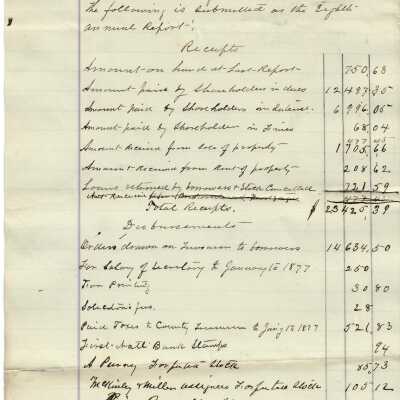 The following is submitted as the Eighth
annual Report.
Receipts
Amount on hand at Last Report 750,68
Amount paid by Shareholders in dues 12 487 35
Amount paid by Shareholders in 6 996 05
Amount paid by Shareholders in Fines 68,04
Amount Received from Sale of property 1 705,66
Amount Received from Rent of property 208 62
Loans returned by borrowers & Stock Cancelled 721 59
Total Receipts. $ 23 425,39
Disbursements
Orders drawn on Treasurer to borrowers 14 634,50
For Salary of Secretary to January 1877 250
For Printing 30 80
Solicitors fees. 28
Paid Taxes to County Treasurer to Jany 1877 521,83
First Natl Bank Stamps 94
A Forfeited Stock 85,73
McKinley & Miller assignees Forfeited Stock 105 12